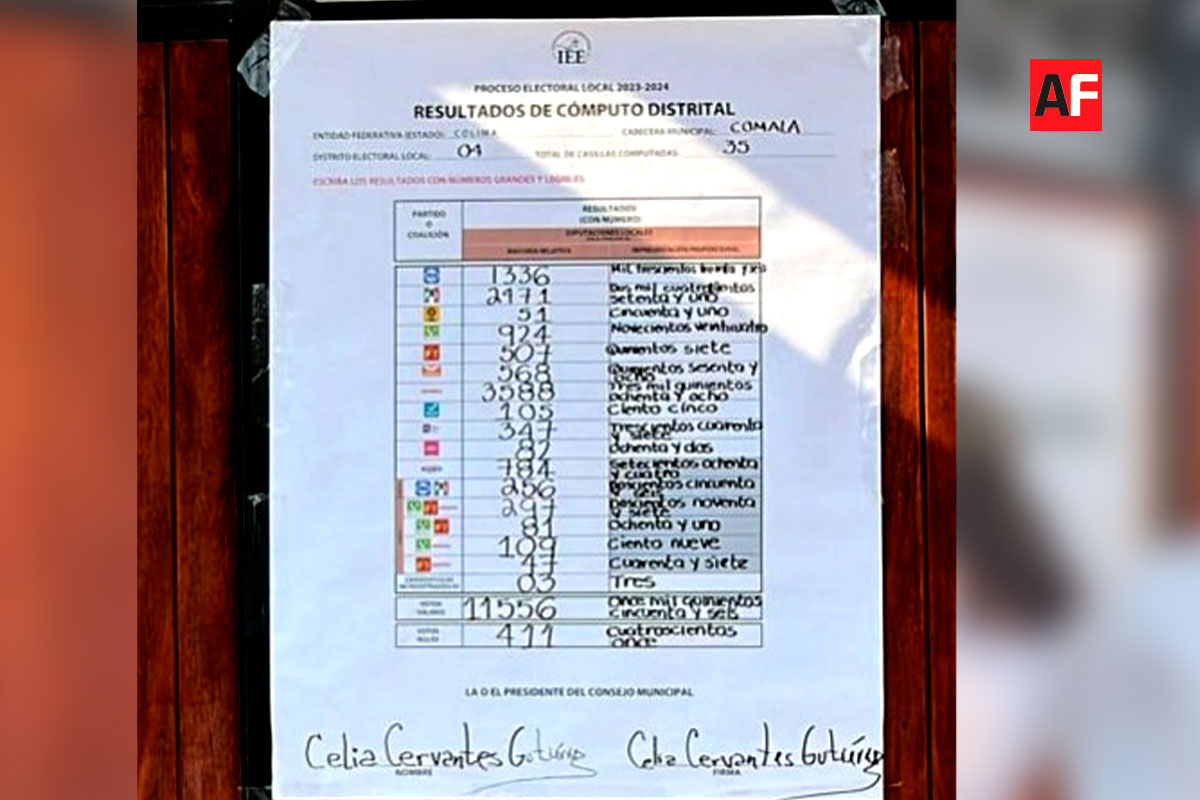 AF
IEE
PROCESO ELECTORAL LOCAL 2023-2024
RESULTADOS DE CÓMPUTO DISTRITAL
ENTIDAD FEDERATIVA (ESTADO): COLIMA CABECERA MUNICIPAL: COMALA
DISTRITO ELECTORAL LOCAL: 04 TOTAL DE CASILLAS COMPUTADAS: 35
ESCRIBA LOS RESULTADOS CON NÚMEROS GRANDES Y LEGIBLES
PARTIDO O COALICIÓN
RESULTADOS
(CON NÚMERO)
DIPUTACIONES LOCALES
MAYORÍA RELATIVA REPRESENTACIÓN PROPORCIONAL
1336 Mil trescientos treinta y seis
2471 Dos mil cuatrocientos setenta y uno
51 Cincuenta y uno
924 Novecientos veinticuatro
507 Quinientos siete
568 Quinientos sesenta y ocho
3588 Tres mil quinientos ochenta y ocho
105 Ciento cinco
347 Trescientos cuarenta y siete
82 Ochenta y dos
784 Setecientos ochenta y cuatro
256 Doscientos cincuenta y seis
297 Doscientos noventa y siete
81 Ochenta y uno
109 Ciento nueve
47 Cuarenta y siete
03 Tres
VOTOS VÁLIDOS 11556 Once mil quinientos cincuenta y seis
VOTOS NULOS 411 Cuatroscientos once
LA O EL PRESIDENTE DEL CONSEJO MUNICIPAL
Celia Cervantes Gutiérrez Celia Cervantes Gutiérrez
NOMBRE FIRMA